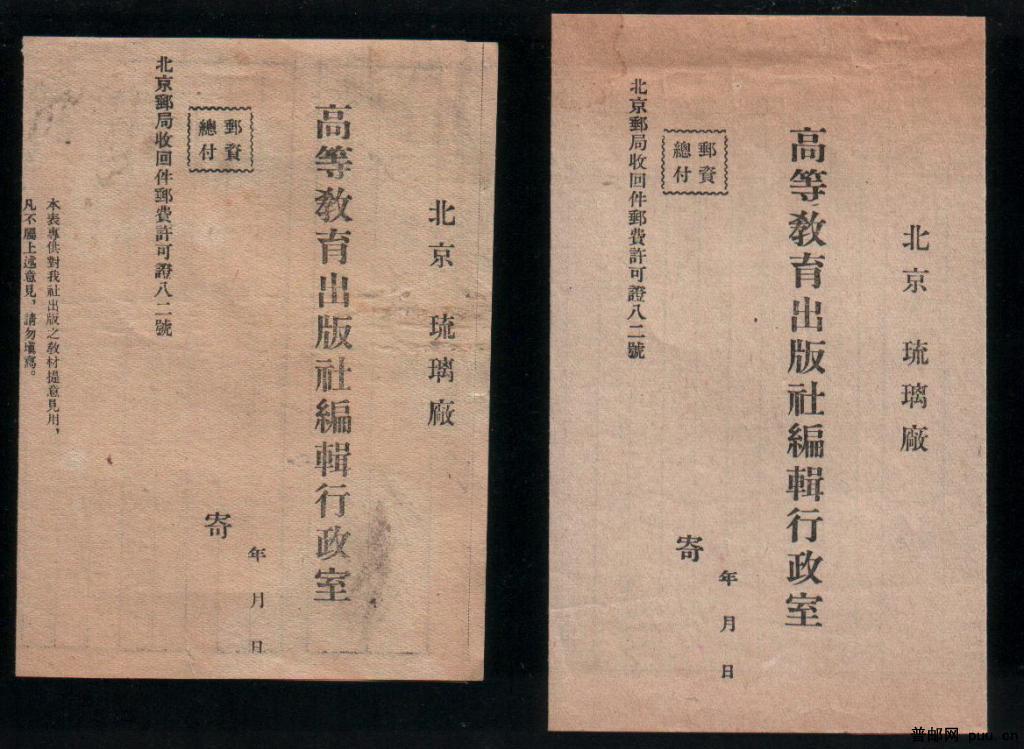 北京 琉璃廠
高等教育出版社編輯行政室
年 月 日
寄
郵資
總付
北京郵局收回件郵費許可證八二號
本表專供對我社出版之教材提意見用，
凡不屬上述意見，請勿填寫。
北京 琉璃廠
高等教育出版社編輯行政室
年 月 日
寄
郵資
總付
北京郵局收回件郵費許可證八二號
普邮网 puu.cn